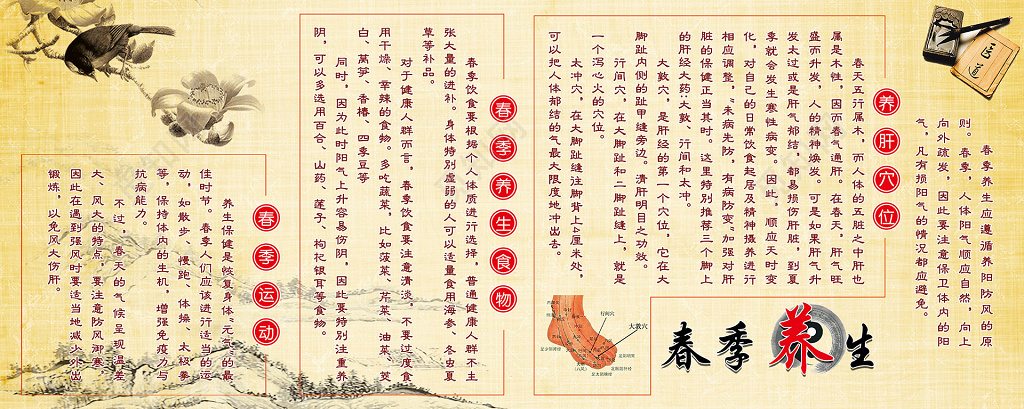 春季养生应遵循养阳防风的原
则。春季，人体阳气顺应自然，向上
向外疏发，因此要注意保卫体内的阳
气，凡有损阳气的情况都应避免。
春季养生
养肝穴位
春天五行属木，而人体的五脏之中肝也
属是木性，因而春气通肝。在春天，肝气旺
盛而升发，人的精神焕发。可是如果肝气升
发太过或是肝气郁结，都易损伤肝脏，到夏
季就会发生寒性病变。因此，顺应天时变
化，对自己的日常饮食起居及精神摄养进行
相应调整，“未病先防，有病防变”加强对肝
脏的保健正当其时。这里特别推荐三个脚上
的肝经大药:大敦、行间和太冲。
大敦穴，是肝经的第一个穴位，它在大
脚趾内侧的趾甲缝旁边。清肝明目之功效。
行间穴，在大脚趾和二脚趾缝上，就是
一个泻心火的穴位。
太冲穴，在大脚趾缝往脚背上4厘米处，
可以把人体郁结的气最大限度地冲出去。
行间穴
大敦穴
春季养生食物
春季饮食要根据个人体质进行选择，普通健康人群不主
张大量的进补。身体特别虚弱的人可以适量食用海参、冬虫夏
草等补品。
对于健康人群而言，春季饮食要注意清淡，不要过度食
用干燥、辛辣的食物。多吃蔬菜，比如菠菜、芹菜、油菜、茭
白、莴笋、香椿、四季豆等
同时，因为此时阳气上升容易伤阴，因此要特别注重养
阴，可以多选用百合、山药、莲子、枸杞银耳等食物。
春季运动
养生保健是恢复身体“元气”的最
佳时节。春季人们应该进行适当的运
动，如散步、慢跑、体操、太极拳
等，保持体内的生机，增强免疫力与
抗病能力。
不过，春天的气候呈现温差
大、风大的特点，要注意防风御寒。
因此在遇到强风时要适当地减少外出
锻炼，以免风大伤肝。